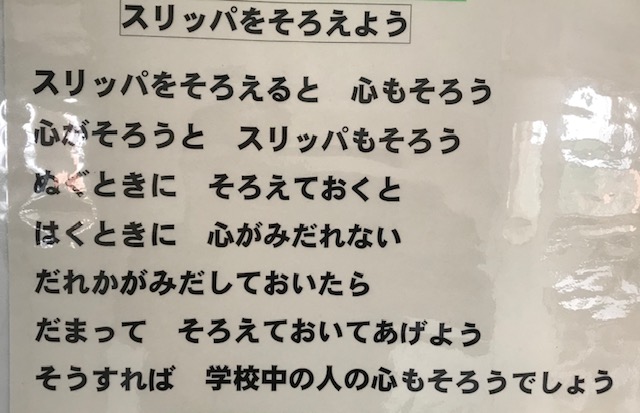 スリッパをそろえよう
スリッパをそろえると　心もそろう
心がそろうと　スリッパもそろう
ぬぐときに　そろえておくと
はくときに　心がみだれない
だれかがみだしておいたら
だまって　そろえておいてあげよう
そうすれば　学校中の人の心もそろうでしょう